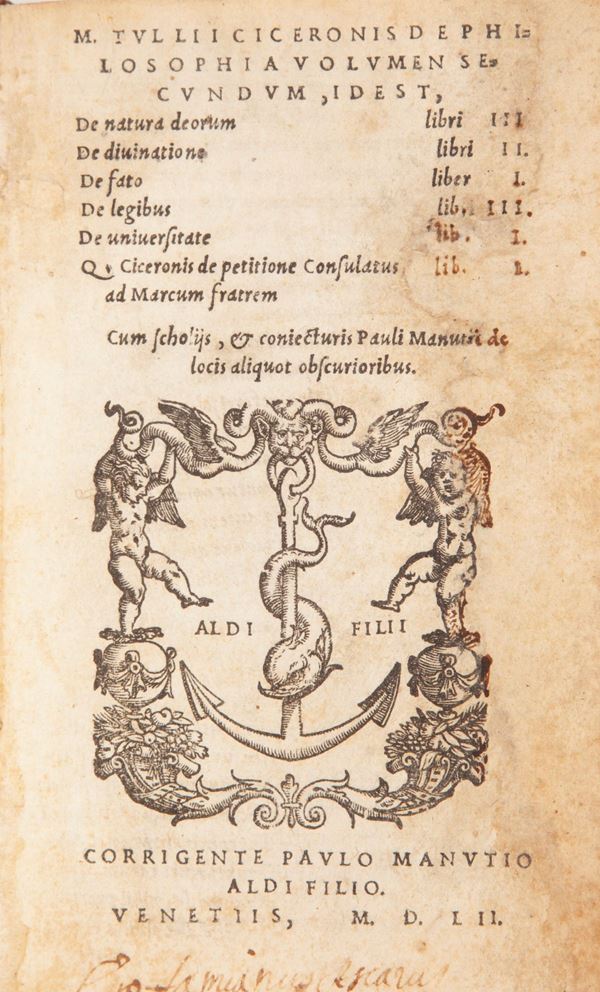 M. TVLLII CICERONIS DE PHI=
LOSOPHIA VOLVMEN SE=
CVNDVM, IDEST,
De natura deorum libri III
De diuinatione libri II.
De fato liber I.
De legibus lib. III.
De uniuerſitate lib. I.
Q. Ciceronis de petitione Conſulatus lib. I.
ad Marcum fratrem
Cum ſcholijs, & coniecturis Pauli Manutii de
locis aliquot obſcurioribus.
ALDI FILII
CORRIGENTE PAVLO MANVTIO
ALDI FILIO.
VENETIIS, M. D. LII.